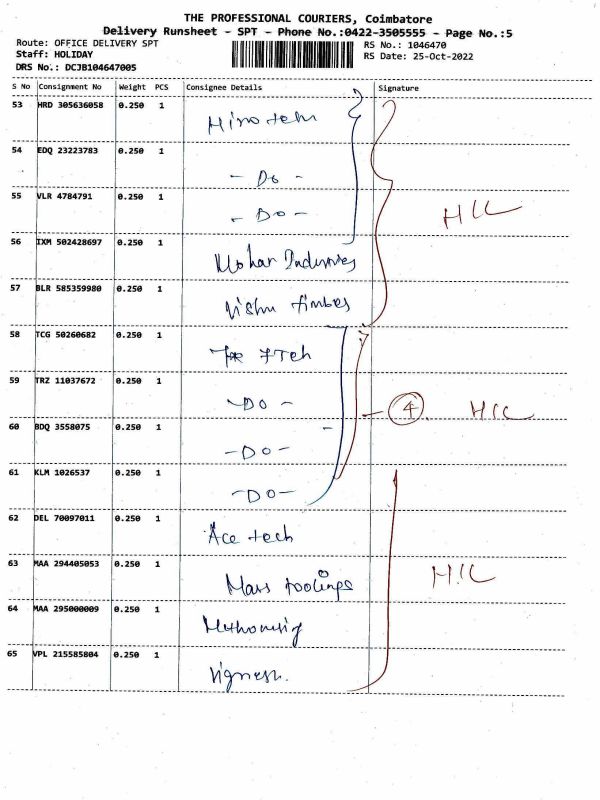 THE PROFESSIONAL COURIERS, Coimbatore
Delivery Runsheet - SPT - Phone No.:0422-3505555 - Page No.:5
Route: OFFICE DELIVERY SPT
RS No.: 1046470
Staff: HOLIDAY
RS Date: 25-Oct-2022
DRS No.: DCJB104647005
S No Consignment No Weight PCS Consignee Details Signature
53 HRD 305636058 0.250 1
54 EDQ 23223783 0.250 1
- Do -
55 VLR 4784791 0.250 1
- Do -
HIC
56 IXM 502428697 0.250 1
Industries
57 BLR 585359980 0.250 1
58 TCG 50260682 0.250 1
59 TRZ 11037672 0.250 1
- DO -
4 HIC
60 BDQ 3558075 0.250 1
- DO -
61 KLM 1026537 0.250 1
- DO -
62 DEL 70097011 0.250 1
Ace tech
63 MAA 294405053 0.250 1
Mass toolings
HIC
64 MAA 295000009 0.250 1
65 VPL 215585804 0.250 1
Vignesh.